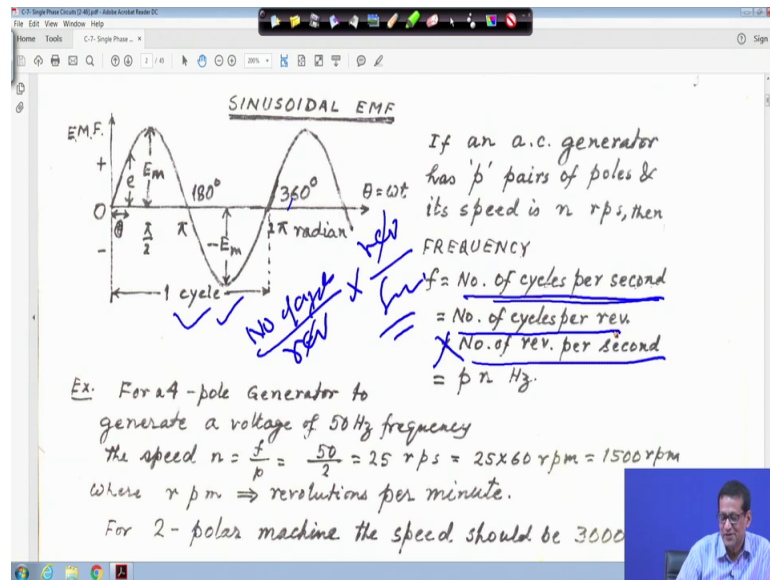 C-7- Single Phase Circuits [2-46].pdf - Adobe Acrobat Reader DC
File Edit View Window Help
Home Tools C-7- Single Phase ... × Sign
2 / 45 200%
SINUSOIDAL EMF
E.M.F.
+
e
Em
180°
360°
θ = ωt
O
θ
π/2
π
-Em
2π radian
-
1 cycle
If an a.c. generator
has 'p' pairs of poles &
its speed is n rps, then
FREQUENCY
f = No. of cycles per second
= No. of cycles per rev.
× No. of rev. per second
= p n Hz.
No of cycle
rev
×
rev
Ex. For a 4-pole Generator to
generate a voltage of 50 Hz frequency
the speed n = f/p = 50/2 = 25 rps = 25×60 rpm = 1500 rpm
where rpm ⇒ revolutions per minute.
For 2-polar machine the speed should be 3000